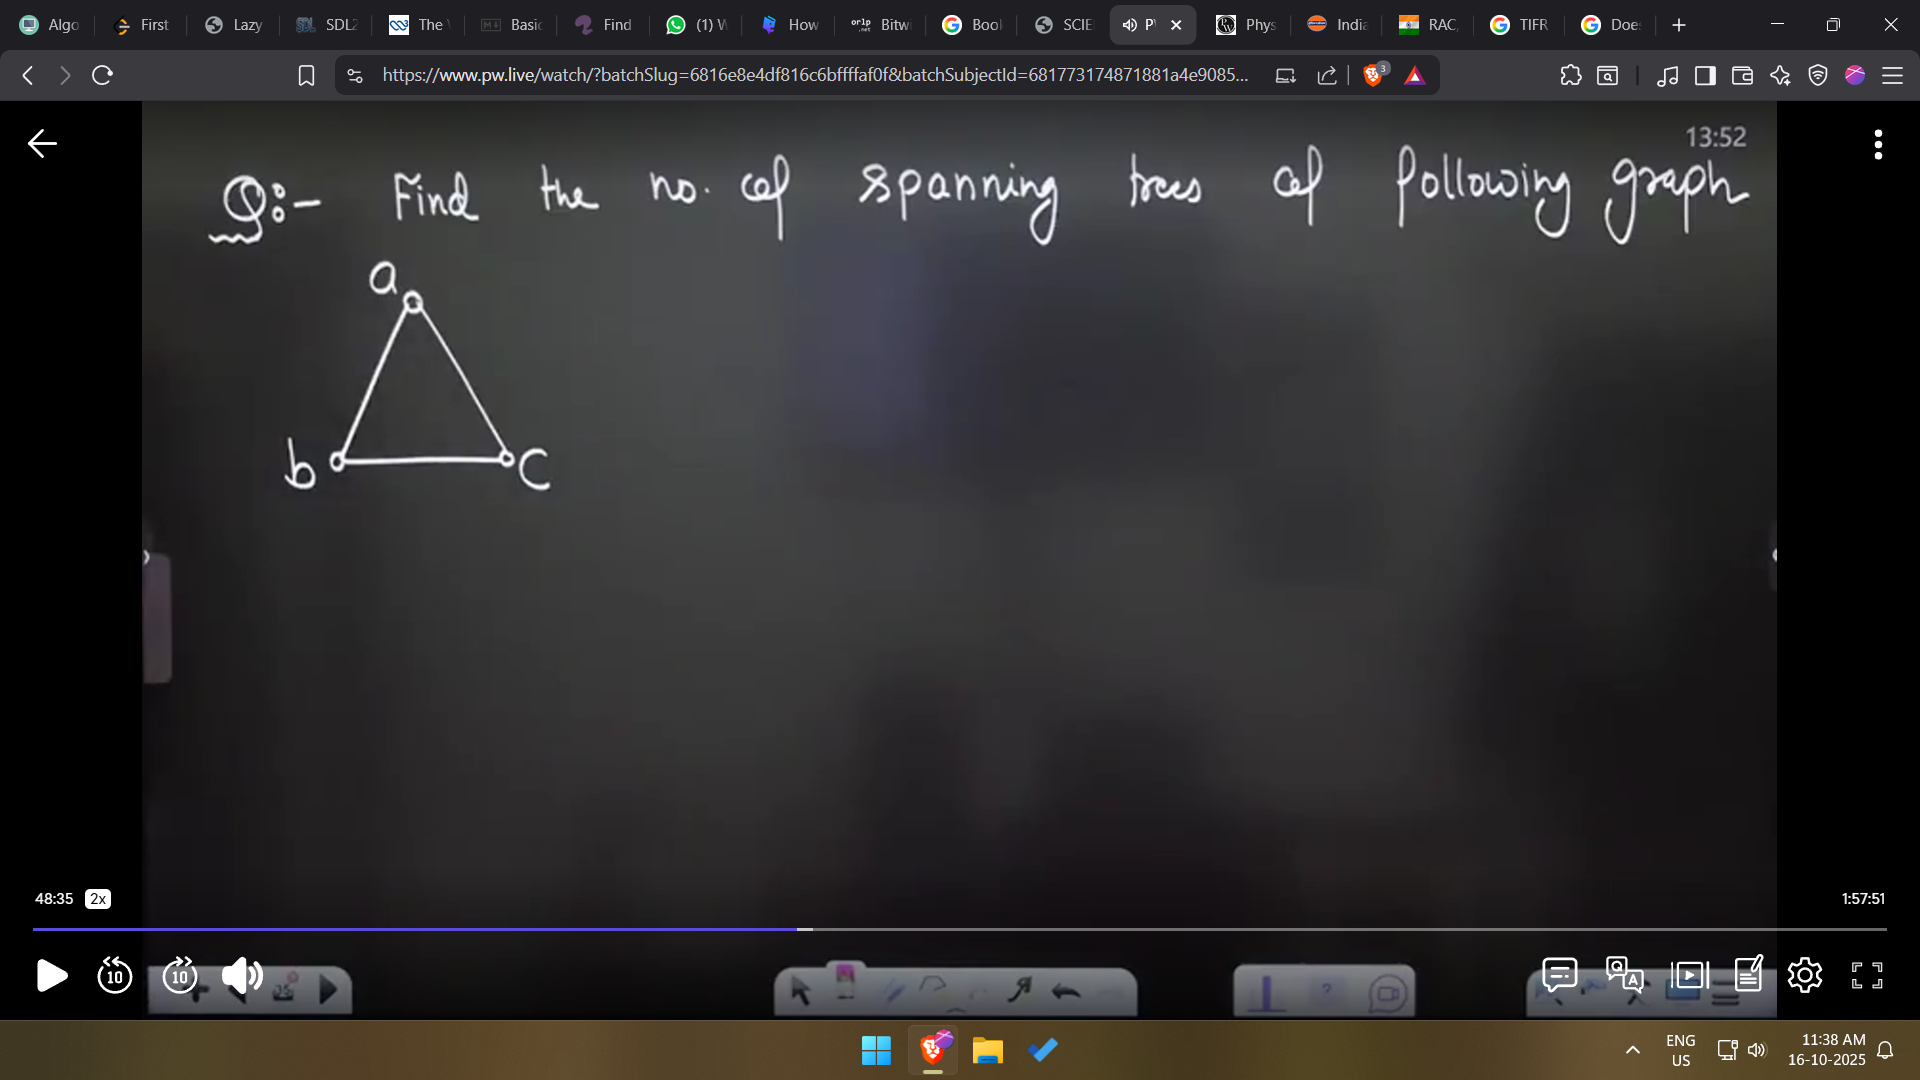 Algo First Lazy SDL2 The Basic Find (1) How Bitw Bool SCIE Phys India RAC, TIFR Does
https://www.pw.live/watch/?batchSlug=6816e8e4df816c6bffffaf0f&batchSubjectId=681773174871881a4e9085... 3
13:52
Q:- Find the no. of spanning trees of following graph
a
b c
48:35 2x 1:57:51
10 10
ENG 11:38 AM
US 16-10-2025